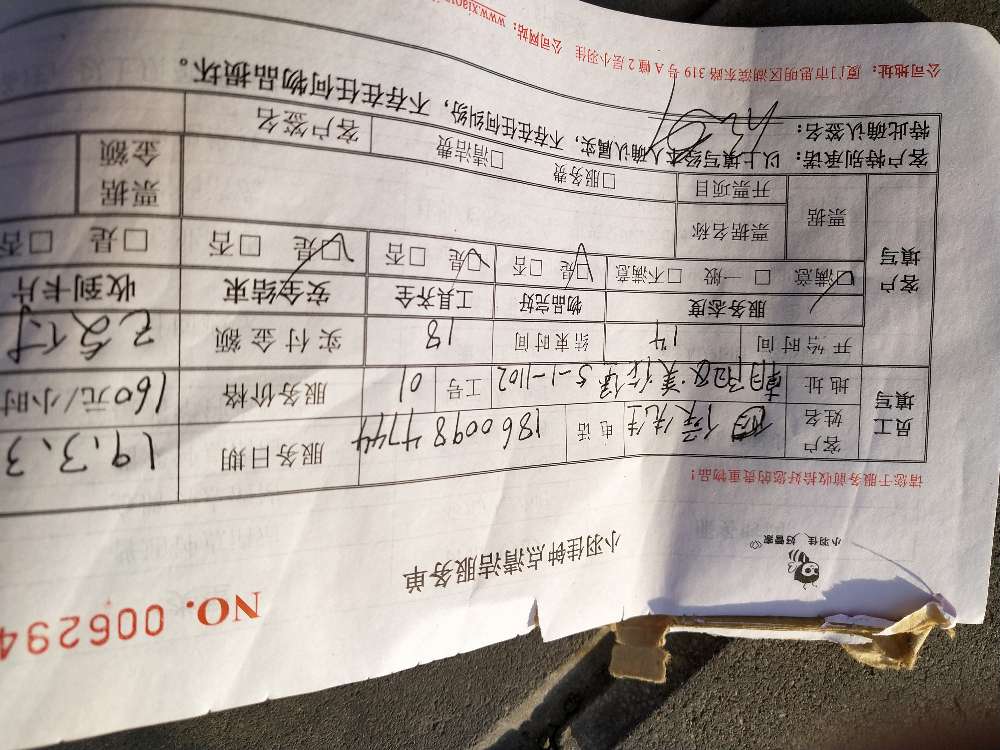 NO. 006294
小羽佳 好管家
小羽佳钟点清洁服务单
请您于服务前收拾好您的贵重物品!
员工填写 客户姓名 先生 电话 18600984744 服务日期 19.3.3
地址 5-1-1102 工号 01 服务价格 160元/小时
开始时间 14 结束时间 18 实付金额 已支付
客户填写 服务态度 物品完好 工具齐全 安全结束 收到卡片
☑满意 □一般 □不满意 ☑是 □否 ☑是 □否 ☑是 □否 □是 □否
票据 票据名称 票据金额
开票项目 □服务费 □清洁费
客户特别承诺:以上填写经本人确认属实,不存在任何纠纷,不存在任何物品损坏。
特此确认签名: 客户签名
公司地址:厦门市思明区湖滨东路319号A幢2层小羽佳 公司网站:www.xiaoy